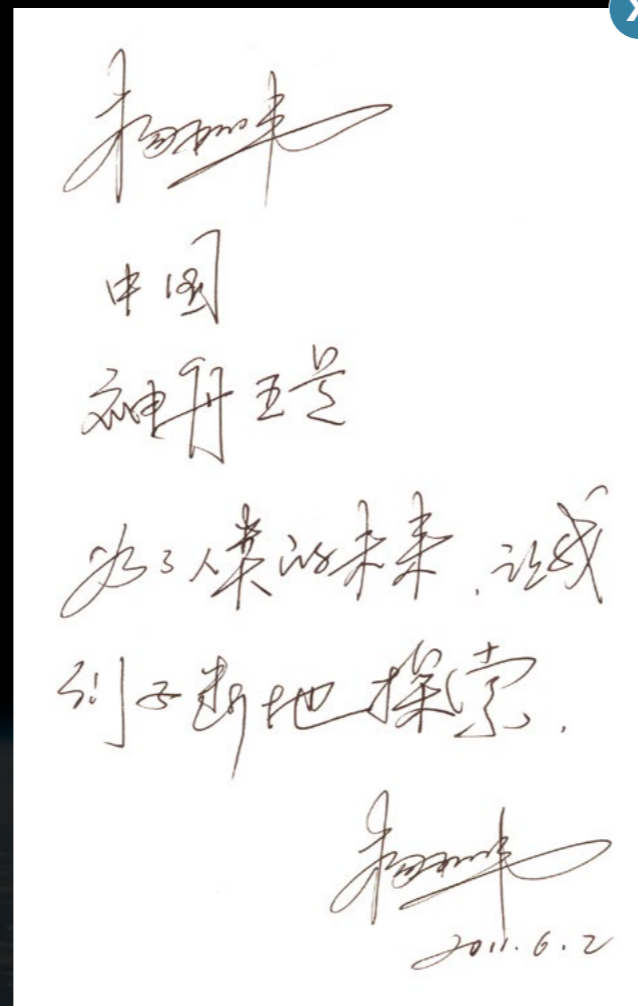 杨利伟
中国
神舟五号
为了人类的未来，让我
们不断地探索.
杨利伟
2011.6.2